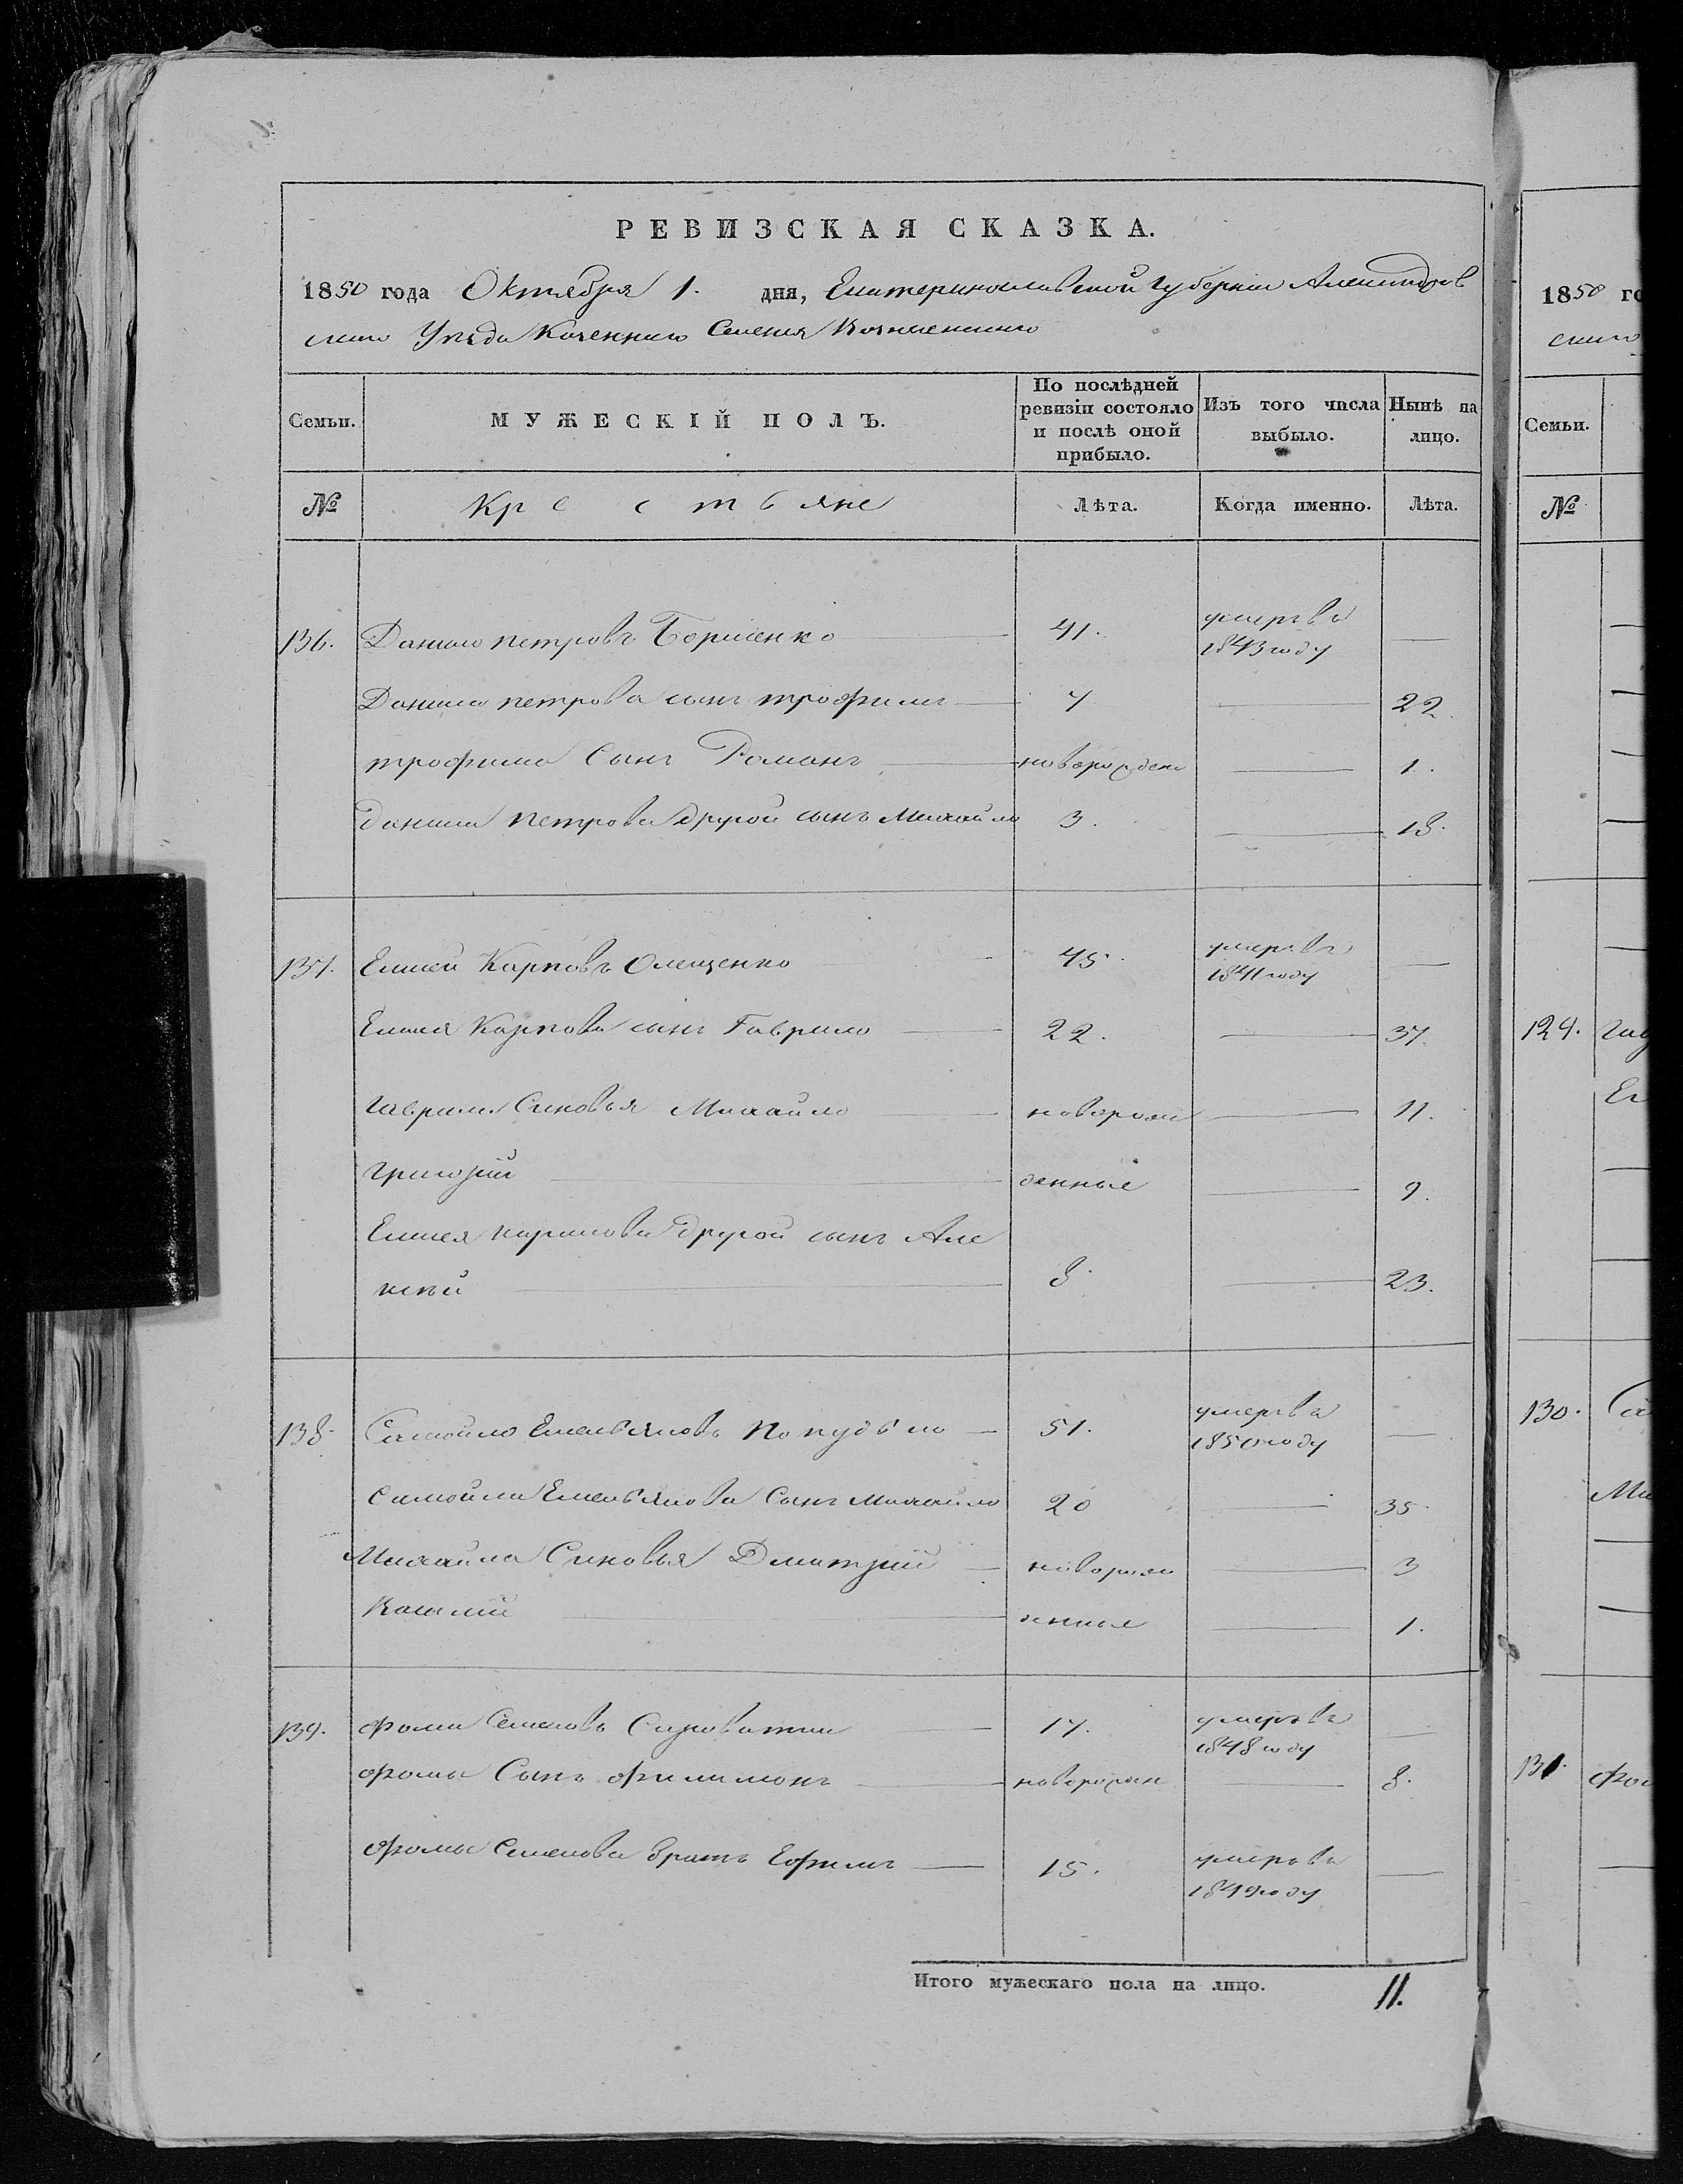 РЕВИЗСКАЯ СКАЗКА.
1850 года Октября 1. дня, Екатеринославской Губернии Александров
скаго Уезда Казеннаго Селения Вознесенскаго
Семьи. МУЖЕСКІЙ ПОЛЪ. По послѣдней ревизіи состояло и послѣ оной прибыло. Изъ того числа выбыло. Нынѣ на лицо.
№ Крестьяне Лѣта. Когда именно. Лѣта.
136. Данило петровъ 41. умеръ въ 1843 году —
Данила петрова сынъ трофимъ 7 — 22.
трофима Сынъ Романъ новорожден — 1.
данила петрова другой сынъ Михайло 3. — 18.
137. Елисей Карповъ Олещенко 45. умеръ въ 1841 году —
Елисея Карпова сынъ Гаврило 22. — 37.
гаврила Синовья Михайло новорож — 11.
григорій денные — 9.
Елисея карпова другой сынъ Але
ксѣй 8. — 23.
138. Самойло Емельяновъ 51. умеръ въ 1850 году —
Самойла Емельянова Сынъ Михайло 20 — 35.
Михайла Синовья Дмитрій новорож — 3
Василій денные — 1.
139. фома Семеновъ Сироватка 17. умеръ въ 1848 году —
фомы Сынъ филимонъ новорожден — 8.
фомы Семенова братъ Ефимъ 15. умеръ въ 1849 году —
Итого мужескаго пола на лицо. 11.
1850 го
скаго
Семьи.
№
129.
130.
Ми
131. фом